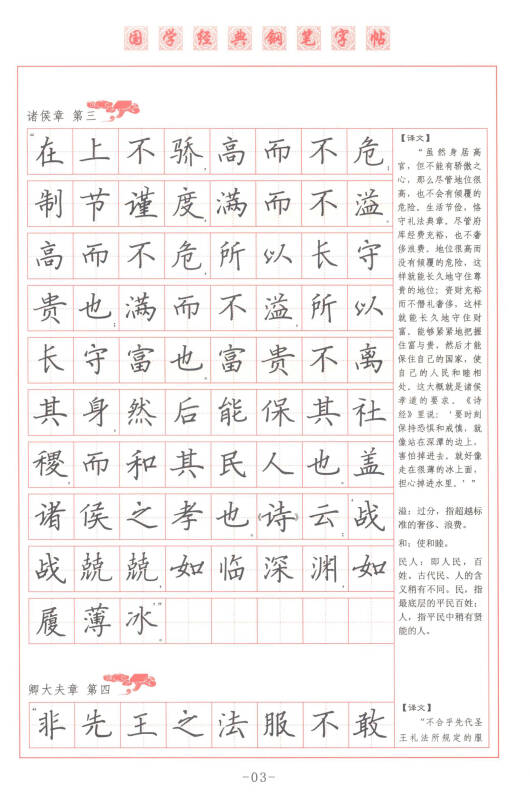 国学经典钢笔字帖
诸侯章 第三
“在上不骄,高而不危;
制节谨度,满而不溢。
高而不危,所以长守
贵也;满而不溢,所以
长守富也。富贵不离
其身,然后能保其社
稷,而和其民人也。盖
诸侯之孝也。《诗》云:‘战
战兢兢,如临深渊,如
履薄冰。’”
【译文】
“虽然身居高
官,但不能有骄傲之
心,那么尽管地位很
高,也不会有倾覆的
危险。生活节俭,恪
守礼法典章,尽管府
库经费充裕,也不奢
侈浪费。地位很高而
没有倾覆的危险,这
样就能长久地守住尊
贵的地位;资财充裕
而不僭礼奢侈,这样
就能长久地守住财
富。能够紧紧地把握
住富与贵,然后才能
保住自己的国家,使
自己的人民和睦相
处。这大概就是诸侯
孝道的要求。《诗
经》里说:‘要时刻
保持恐惧和戒慎,就
像站在深潭的边上,
害怕掉进去,就好像
走在很薄的冰上面,
担心掉进水里。’”
溢:过分,指超越标
准的奢侈、浪费。
和:使和睦。
民人:即人民,百
姓。古代民、人的含
义稍有不同。民,指
最底层的平民百姓;
人,指平民中稍有贤
能的人。
卿大夫章 第四
“非先王之法服不敢
【译文】
“不合乎先代圣
王礼法所规定的服
-03-